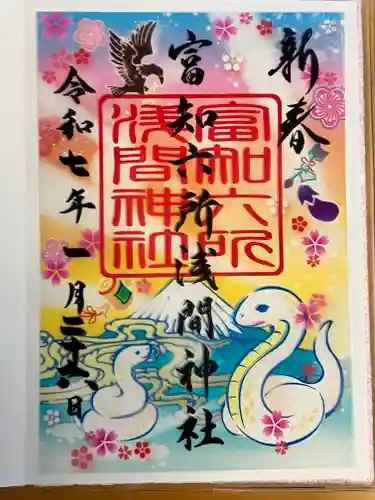 新春
富知六所浅間神社
令和七年一月二十六日
富知六所
浅間神社